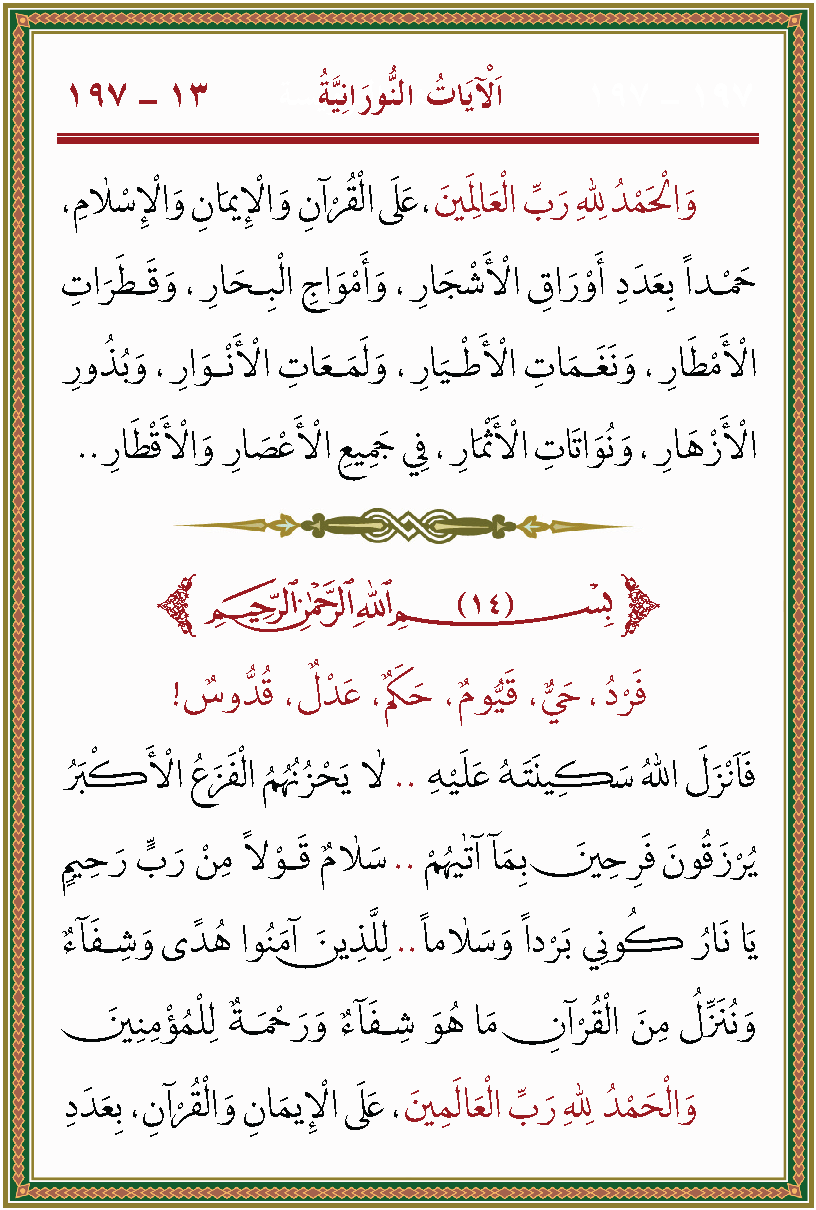 اَلْآيَاتُ النُّورَانِيَّةُ ١٣ – ١٩٧
وَالْحَمْدُ لِلهِ رَبِّ الْعَالَمِينَ، عَلَى الْقُرْآنِ وَالْإِيمَانِ وَالْإِسْلَامِ،
حَمْداً بِعَدَدِ أَوْرَاقِ الْأَشْجَارِ ، وَأَمْوَاجِ الْبِحَارِ ، وَقَطَرَاتِ
الْأَمْطَارِ ، وَنَغَمَاتِ الْأَطْيَارِ ، وَلَمَعَاتِ الْأَنْوَارِ ، وَبُذُورِ
الْأَزْهَارِ ، وَنُوَاتَاتِ الْأَثْمَارِ ، فِي جَمِيعِ الْأَعْصَارِ وَالْأَقْطَارِ..
بِسْمِ اللهِ الرَّحْمٰنِ الرَّحِيمِ (١٤)
فَرْدٌ، حَيٌّ، قَيُّومٌ ، حَكَمٌ، عَدْلٌ، قُدُّوسٌ!
فَاَنْزَلَ اللهُ سَكِينَتَهُ عَلَيْهِ .. لَا يَحْزُنُهُمُ الْفَزَعُ الْأَكْبَرُ
يُرْزَقُونَ فَرِحِينَ بِمَآ آتٰيهُمْ .. سَلَامٌ قَوْلاً مِنْ رَبٍّ رَحِيمٍ
يَا نَارُ كُونِي بَرْداً وَسَلَاماً .. لِلَّذِينَ آمَنُوا هُدًى وَشِفَآءٌ
وَنُنَزِّلُ مِنَ الْقُرْآنِ مَا هُوَ شِفَآءٌ وَرَحْمَةٌ لِلْمُؤْمِنِينَ
وَالْحَمْدُ لِلهِ رَبِّ الْعَالَمِينَ، عَلَى الْإِيمَانِ وَالْقُرْآنِ، بِعَدَدِ